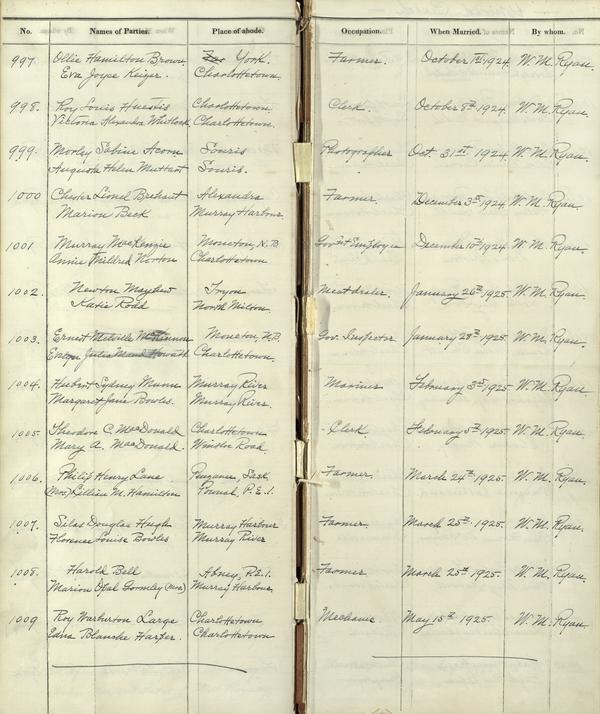 No. Names of Parties. Place of abode. Occupation. When Married. By whom.
997. Ollie Hamilton Brown York. Farmer. October 1st 1924. W. M. Ryan.
Eva Joyce Keizer. Charlottetown.
998. Roy Louis Huestis Charlottetown. Clerk. October 8th 1924. W. M. Ryan.
Victoria Alexandra Whitlock Charlottetown.
999. Morley Sabine Acorn Souris Photographer Oct. 31st 1924. W. M. Ryan.
Augusta Helen Muttart Souris.
1000 Chester Lionel Brehaut Alexandra Farmer. December 3rd 1924. W. M. Ryan
Marion Beck Murray Harbour.
1001 Murray MacKenzie Moncton, N.B Gov'nt Employee December 10th 1924 W. M. Ryan.
Annie Mildred Norton Charlottetown
1002. Newton Mayhew Tryon Meat dealer. January 26th 1925. W. M. Ryan.
Katie Rodd North Milton.
1003. Ernest Melville McKinnon Moncton, N.B. Gov. Inspector January 28th 1925. W. M. Ryan.
Evelyn Julia Maud Howatt Charlottetown.
1004. Hubert Sydney Munn Murray River Mariner February 3rd 1925 W. M. Ryan.
Margaret Jane Bowles. Murray River.
1005. Theodore C. MacDonald Charlottetown Clerk February 5th 1925. W. M. Ryan.
Mary A. MacDonald. Winsloe Road.
1006. Philip Henry Lane Penzance, Sask Farmer. March 24th 1925. W. M. Ryan.
(Mrs.) Lillian M. Hamilton P.E.I.
1007. Silas Douglas Hugh Murray Harbour Farmer. March 25th 1925. W. M. Ryan.
Florence Louise Bowles Murray River
1008. Harold Bell Abney, P.E.I. Farmer March 25th 1925. W. M. Ryan.
Marion Opal Gormley (Mrs) Murray Harbour.
1009 Roy Warburton Large Charlottetown Mechanic May 15th 1925. W. M. Ryan.
Edna Blanche Harper. Charlottetown